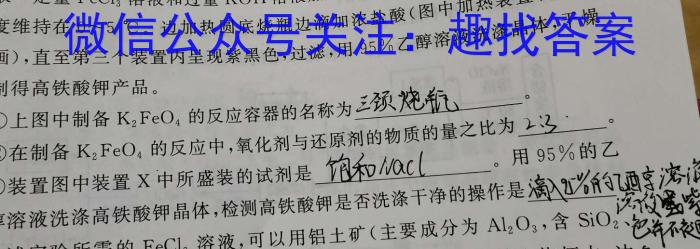 一定量 FeCl₃ 溶液和过量 KOH 溶液
度维持在
微信公众号关注：趣找答案
画)，直至第三个装置内呈现紫黑色，过滤，用 95%乙醇溶液洗涤晶体，干燥
制得高铁酸钾产品。
①上图中制备 K₂FeO₄ 的反应容器的名称为 三颈烧瓶 。
②在制备 K₂FeO₄ 的反应中，氧化剂与还原剂的物质的量之比为 2:3 。
③装置图中装置 X 中所盛装的试剂是 饱和NaCl 。用 95%的乙
醇溶液洗涤高铁酸钾晶体，检测高铁酸钾是否洗涤干净的操作是 滴入95%的乙醇溶液
溶液 FeCl₃ 溶液，可以用铝土矿(主要成分为 Al₂O₃，含 SiO₂